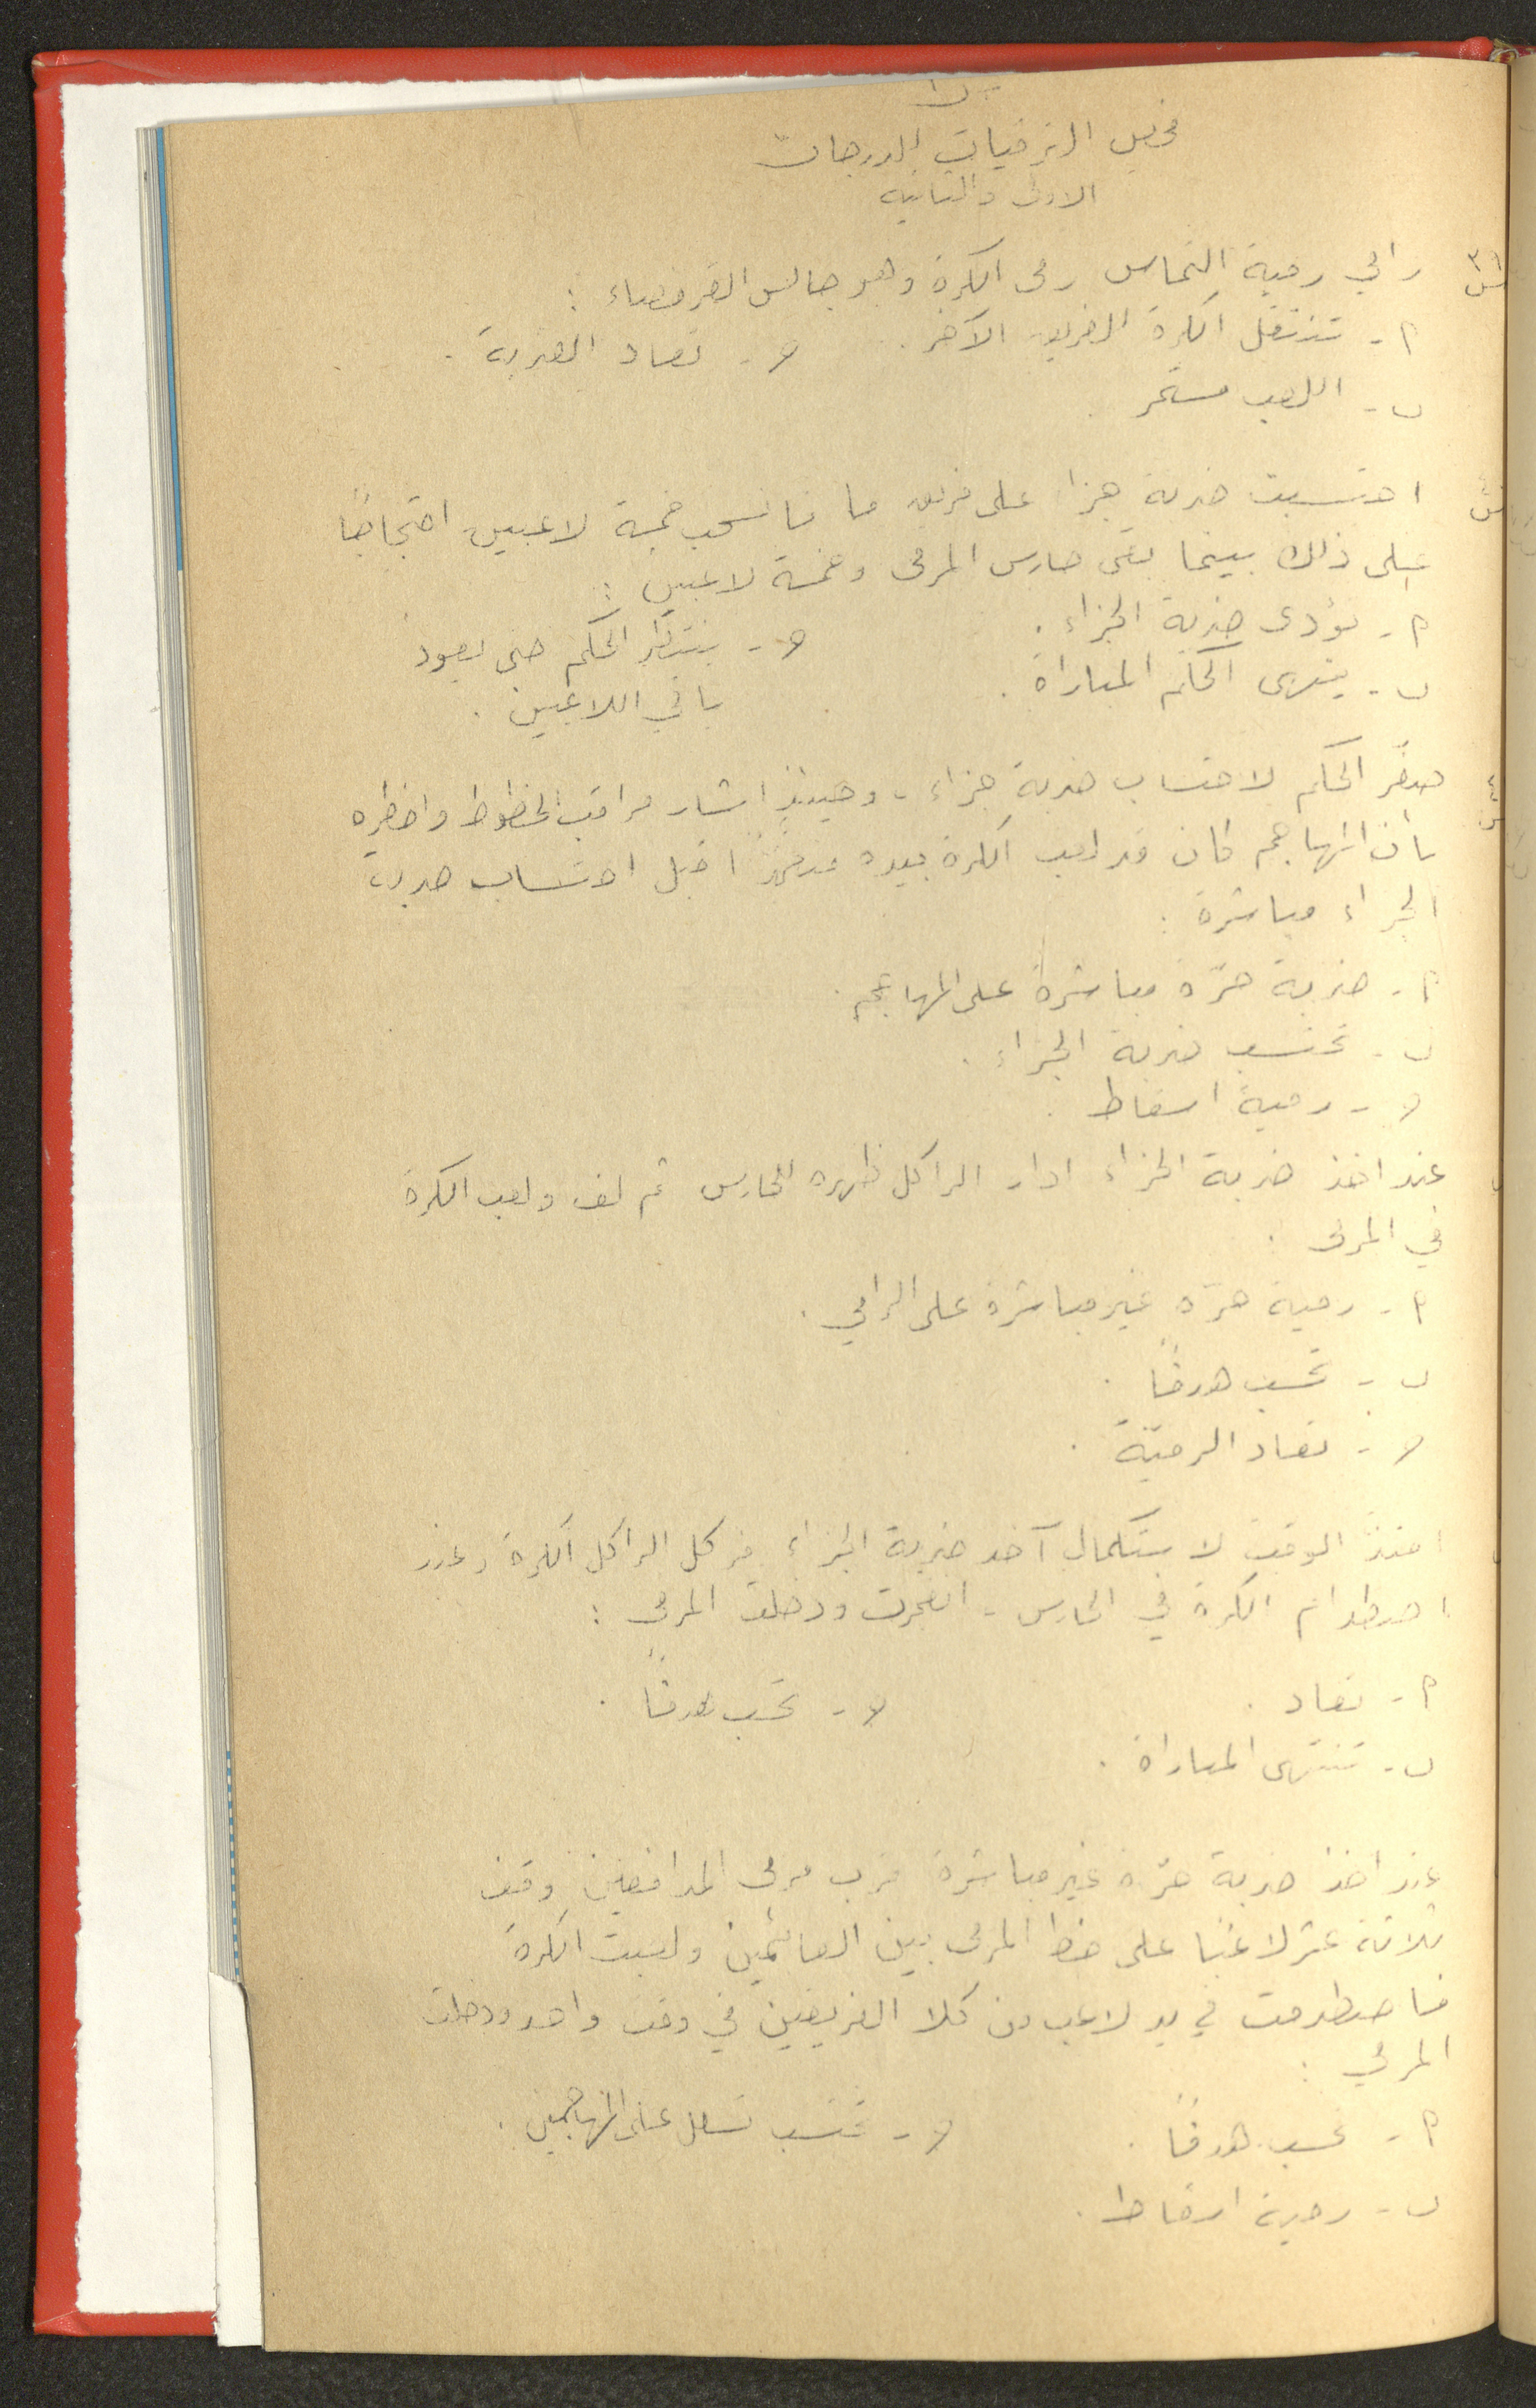 فحص الترفيعات للدرجات
الاولى والثانية
٣٩
س
رامي رمية التماس رمى الكرة وهو جالس القرفصاء :
م - تنتقل الكرة للفريق الآخر .
ب - اللعب مستمر .
حـ - تعاد الضربة .
س
احتسبت ضربة جزا على فريق ما فانسحب خمسة لاعبين احتجاجًا
على ذلك بينما بقى حارس المرمى وخمسة لاعبين :
م - تؤدى ضربة الجزاء .
ب - ينهى الحكم المباراة .
حـ - ينتظر الحكم حتى يعود
باقي اللاعبين .
س
صفّر الحكم لاحتساب ضربة جزاء - وحينئذٍ اشار مراقب الخطوط واخطره
بأن المهاجم كان قد لعب الكرة بيده متعمدًا قبل احتساب ضربة
الجزاء مباشرة :
م - ضربة حرّة مباشرة على المهاجم .
ب - تحتسب ضربة الجزاء .
حـ - رمية اسقاط .
عند اخذ ضربة الجزاء ادار الراكل ظهره للحارس ثم لف ولعب الكرة
في المرمى .
م - رمية حرّة غير مباشرة على الرامي .
ب - تحسب هدفًا .
حـ - تعاد الرميّة .
امتدّ الوقت لاستكمال آخذ ضربة الجزاء فركل الراكل الكرة وعند
اصطدام الكرة في الحارس - انفجرت ودخلت المرمى :
م - تعاد .
ب - تنتهى المباراة .
حـ - تحسب هدفًا .
عند اخذ ضربة حرّة غير مباشرة قرب مرمى المدافعين وقف
ثلاثة عشر لاعبًا على خط المرمى بين القائمين ولعبت الكرة
فاصطدمت في يد لاعب من كلا الفريقين في وقت واحد ودخلت
المرمى :
م - تحسب هدفًا .
ب - رمية اسقاط .
حـ - تحتسب تسلل على المهاجمين .